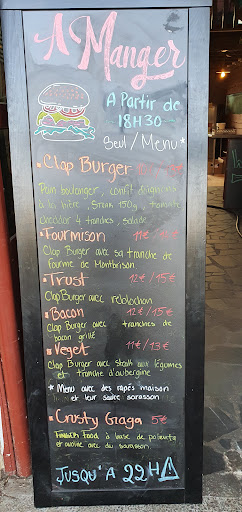 A Manger
A Partir de
18H30
Seul / Menu *
Clap Burger
Pain boulanger, confit d'oignons
à la bière, Steak 150g,
cheddar 4 tranches, salade
Fourmison 11€ /
Clap Burger avec sa tranche de
fourme de Montbrison
Trust 12€ / 15€
Clap Burger avec reblochon
Bacon 12€ / 15€
Clap Burger avec tranches de
bacon grillé
Veget 11€ / 13€
Clap Burger avec steak aux légumes
et tranche d'aubergine
* Menu avec des rapés maison
et leur sauce sarasson
Crusty Gaga 5€
food à base de
et avoine avec du sarasson
JUSQU'A 22H